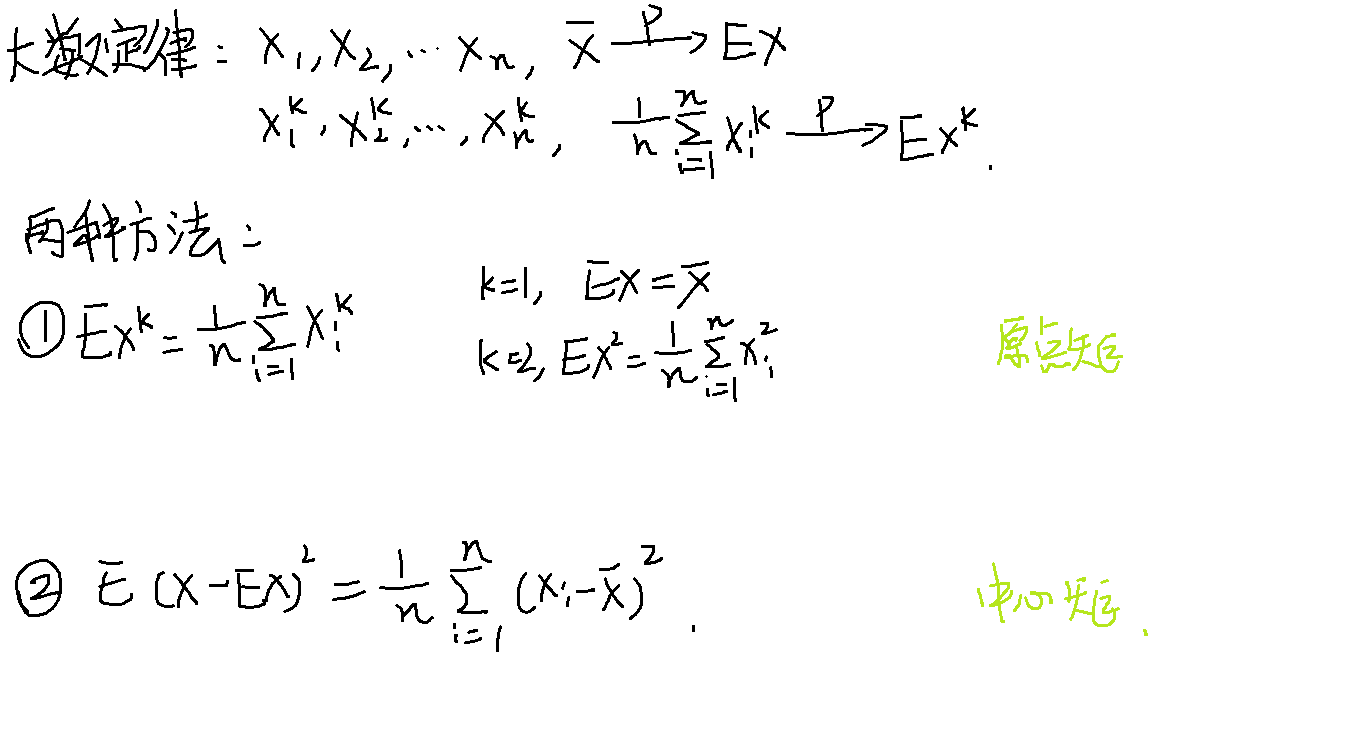 大数定律: X₁, X₂, ⋯ Xₙ, X̄ —P→ EX
X₁ᵏ, X₂ᵏ, ⋯, Xₙᵏ, 1/n ∑ᵢ₌₁ⁿ Xᵢᵏ —P→ EXᵏ.
两种方法:
① EXᵏ = 1/n ∑ᵢ₌₁ⁿ Xᵢᵏ k=1, EX = X̄
k=2, EX² = 1/n ∑ᵢ₌₁ⁿ Xᵢ² 原点矩
② E(X-EX)² = 1/n ∑ᵢ₌₁ⁿ (Xᵢ-X̄)². 中心矩.